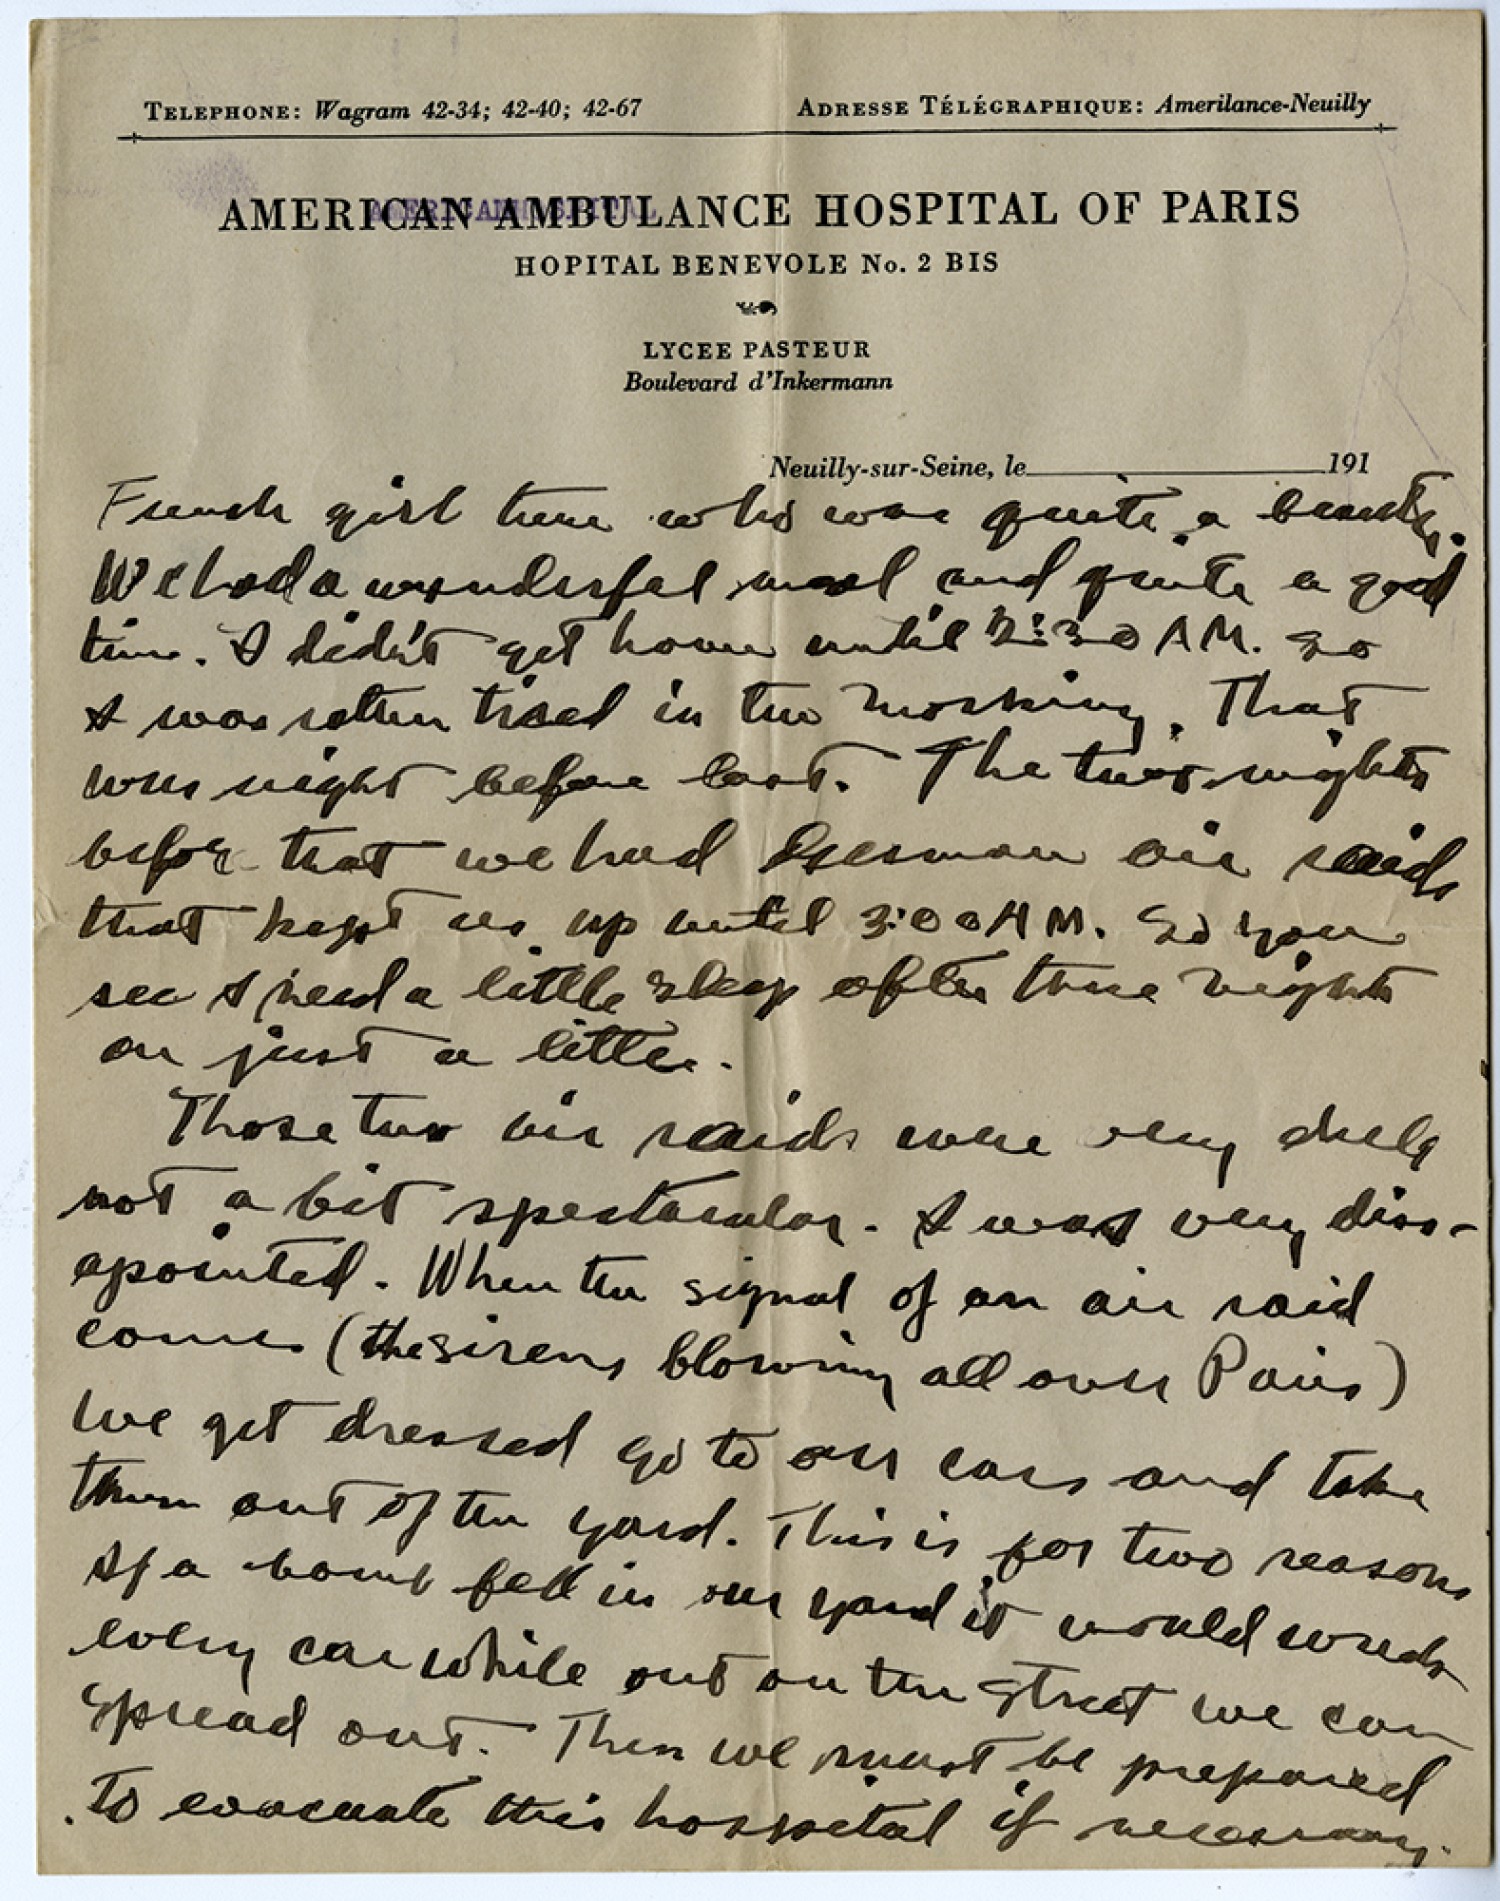 TELEPHONE: Wagram 42-34; 42-40; 42-67
ADRESSE TÉLÉGRAPHIQUE: Amerilance-Neuilly
AMERICAN AMBULANCE HOSPITAL OF PARIS
AMERICAN HOSPITAL
HOPITAL BENEVOLE No. 2 BIS
LYCEE PASTEUR
Boulevard d'Inkermann
Neuilly-sur-Seine, le 191
French girl there who was quite a beauty.
We had a wonderful meal and quite a good
time. I didn't get home until 2:30 AM. So
I was rather tired in the morning. That
was night before last. The two nights
before that we had German air raids
that kept us up until 3:00 AM. So you
see I need a little sleep after three nights
on just a little.
Those two air raids were very dull
not a bit spectacular. I was very diss-
apointed. When the signal of an air raid
comes (the sirens blowing all over Paris)
we get dressed go to our cars and take
them out of the yard. This is for two reasons
If a bomb fell in our yard it would wreck
every car while out on the street we can
spread out. Then we must be prepared
to evacuate this hospital if necessary.